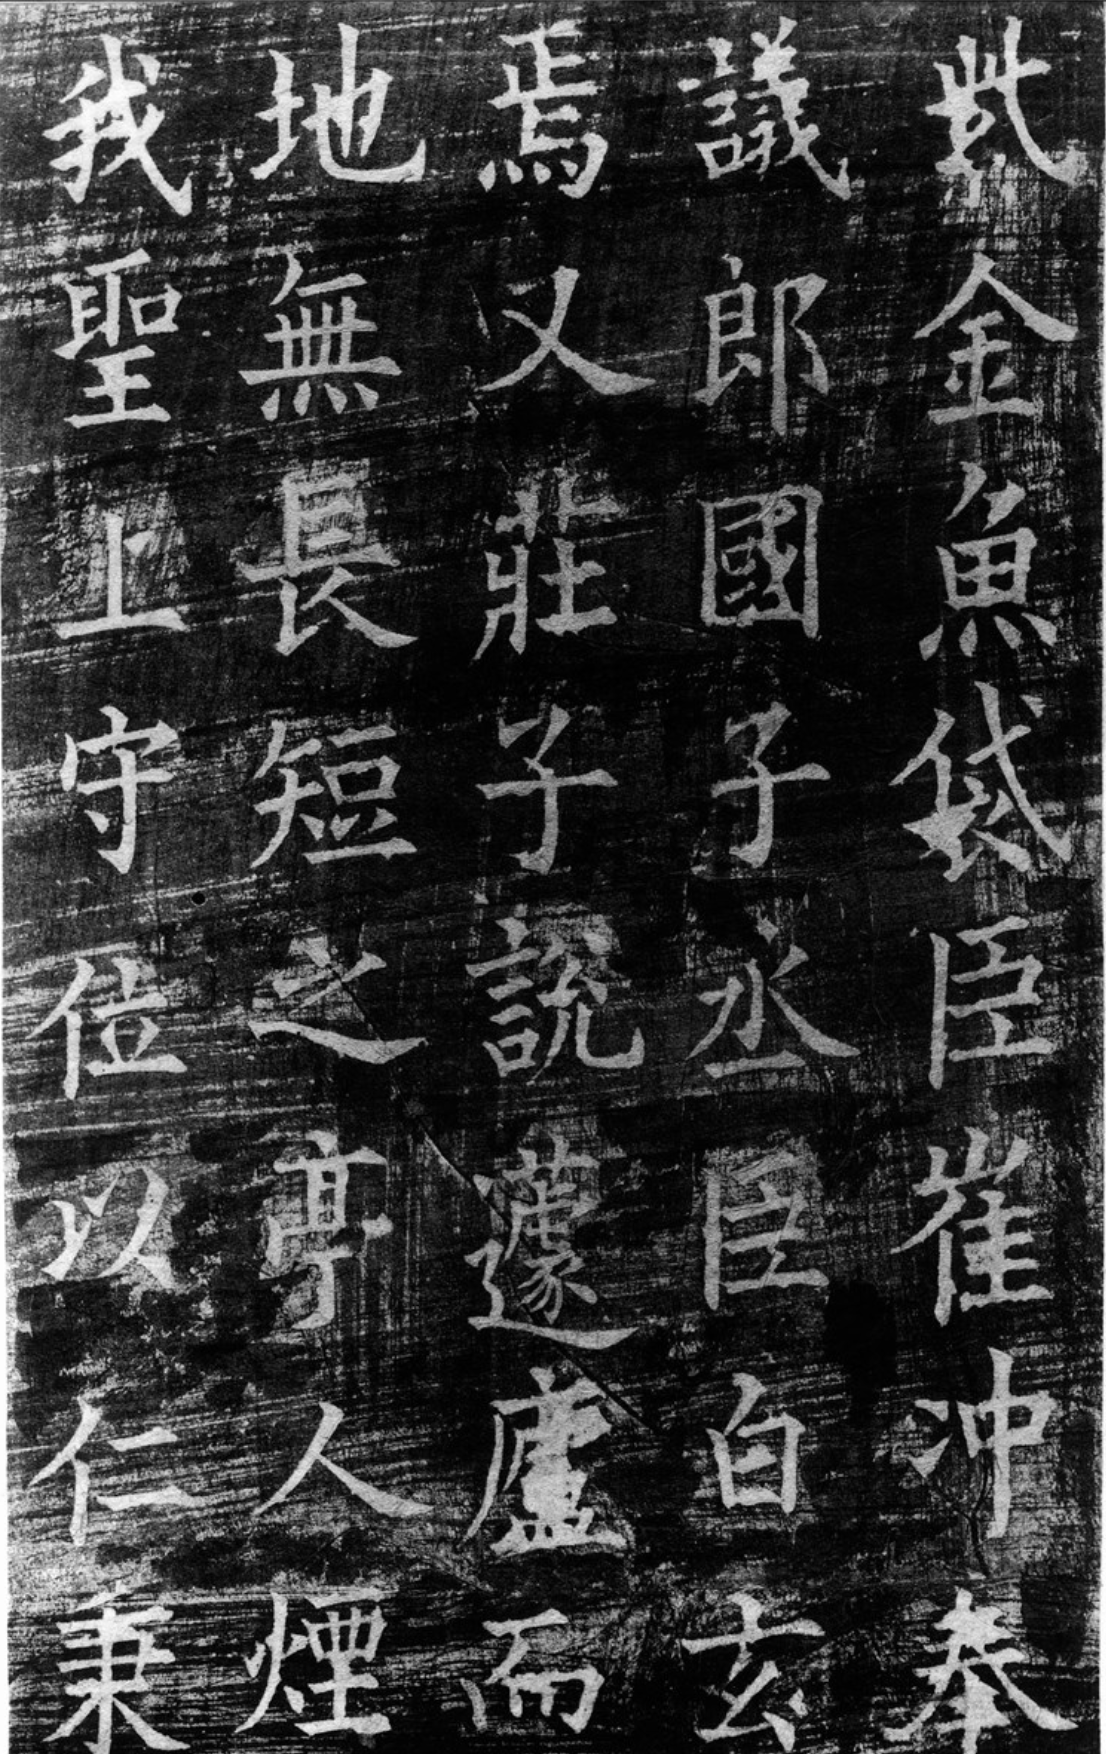 紫金魚袋臣崔沖奉
議郎國子丞臣白玄
焉又莊子說蘧廬而
地無長短之亭人煙
我聖上守位以仁秉